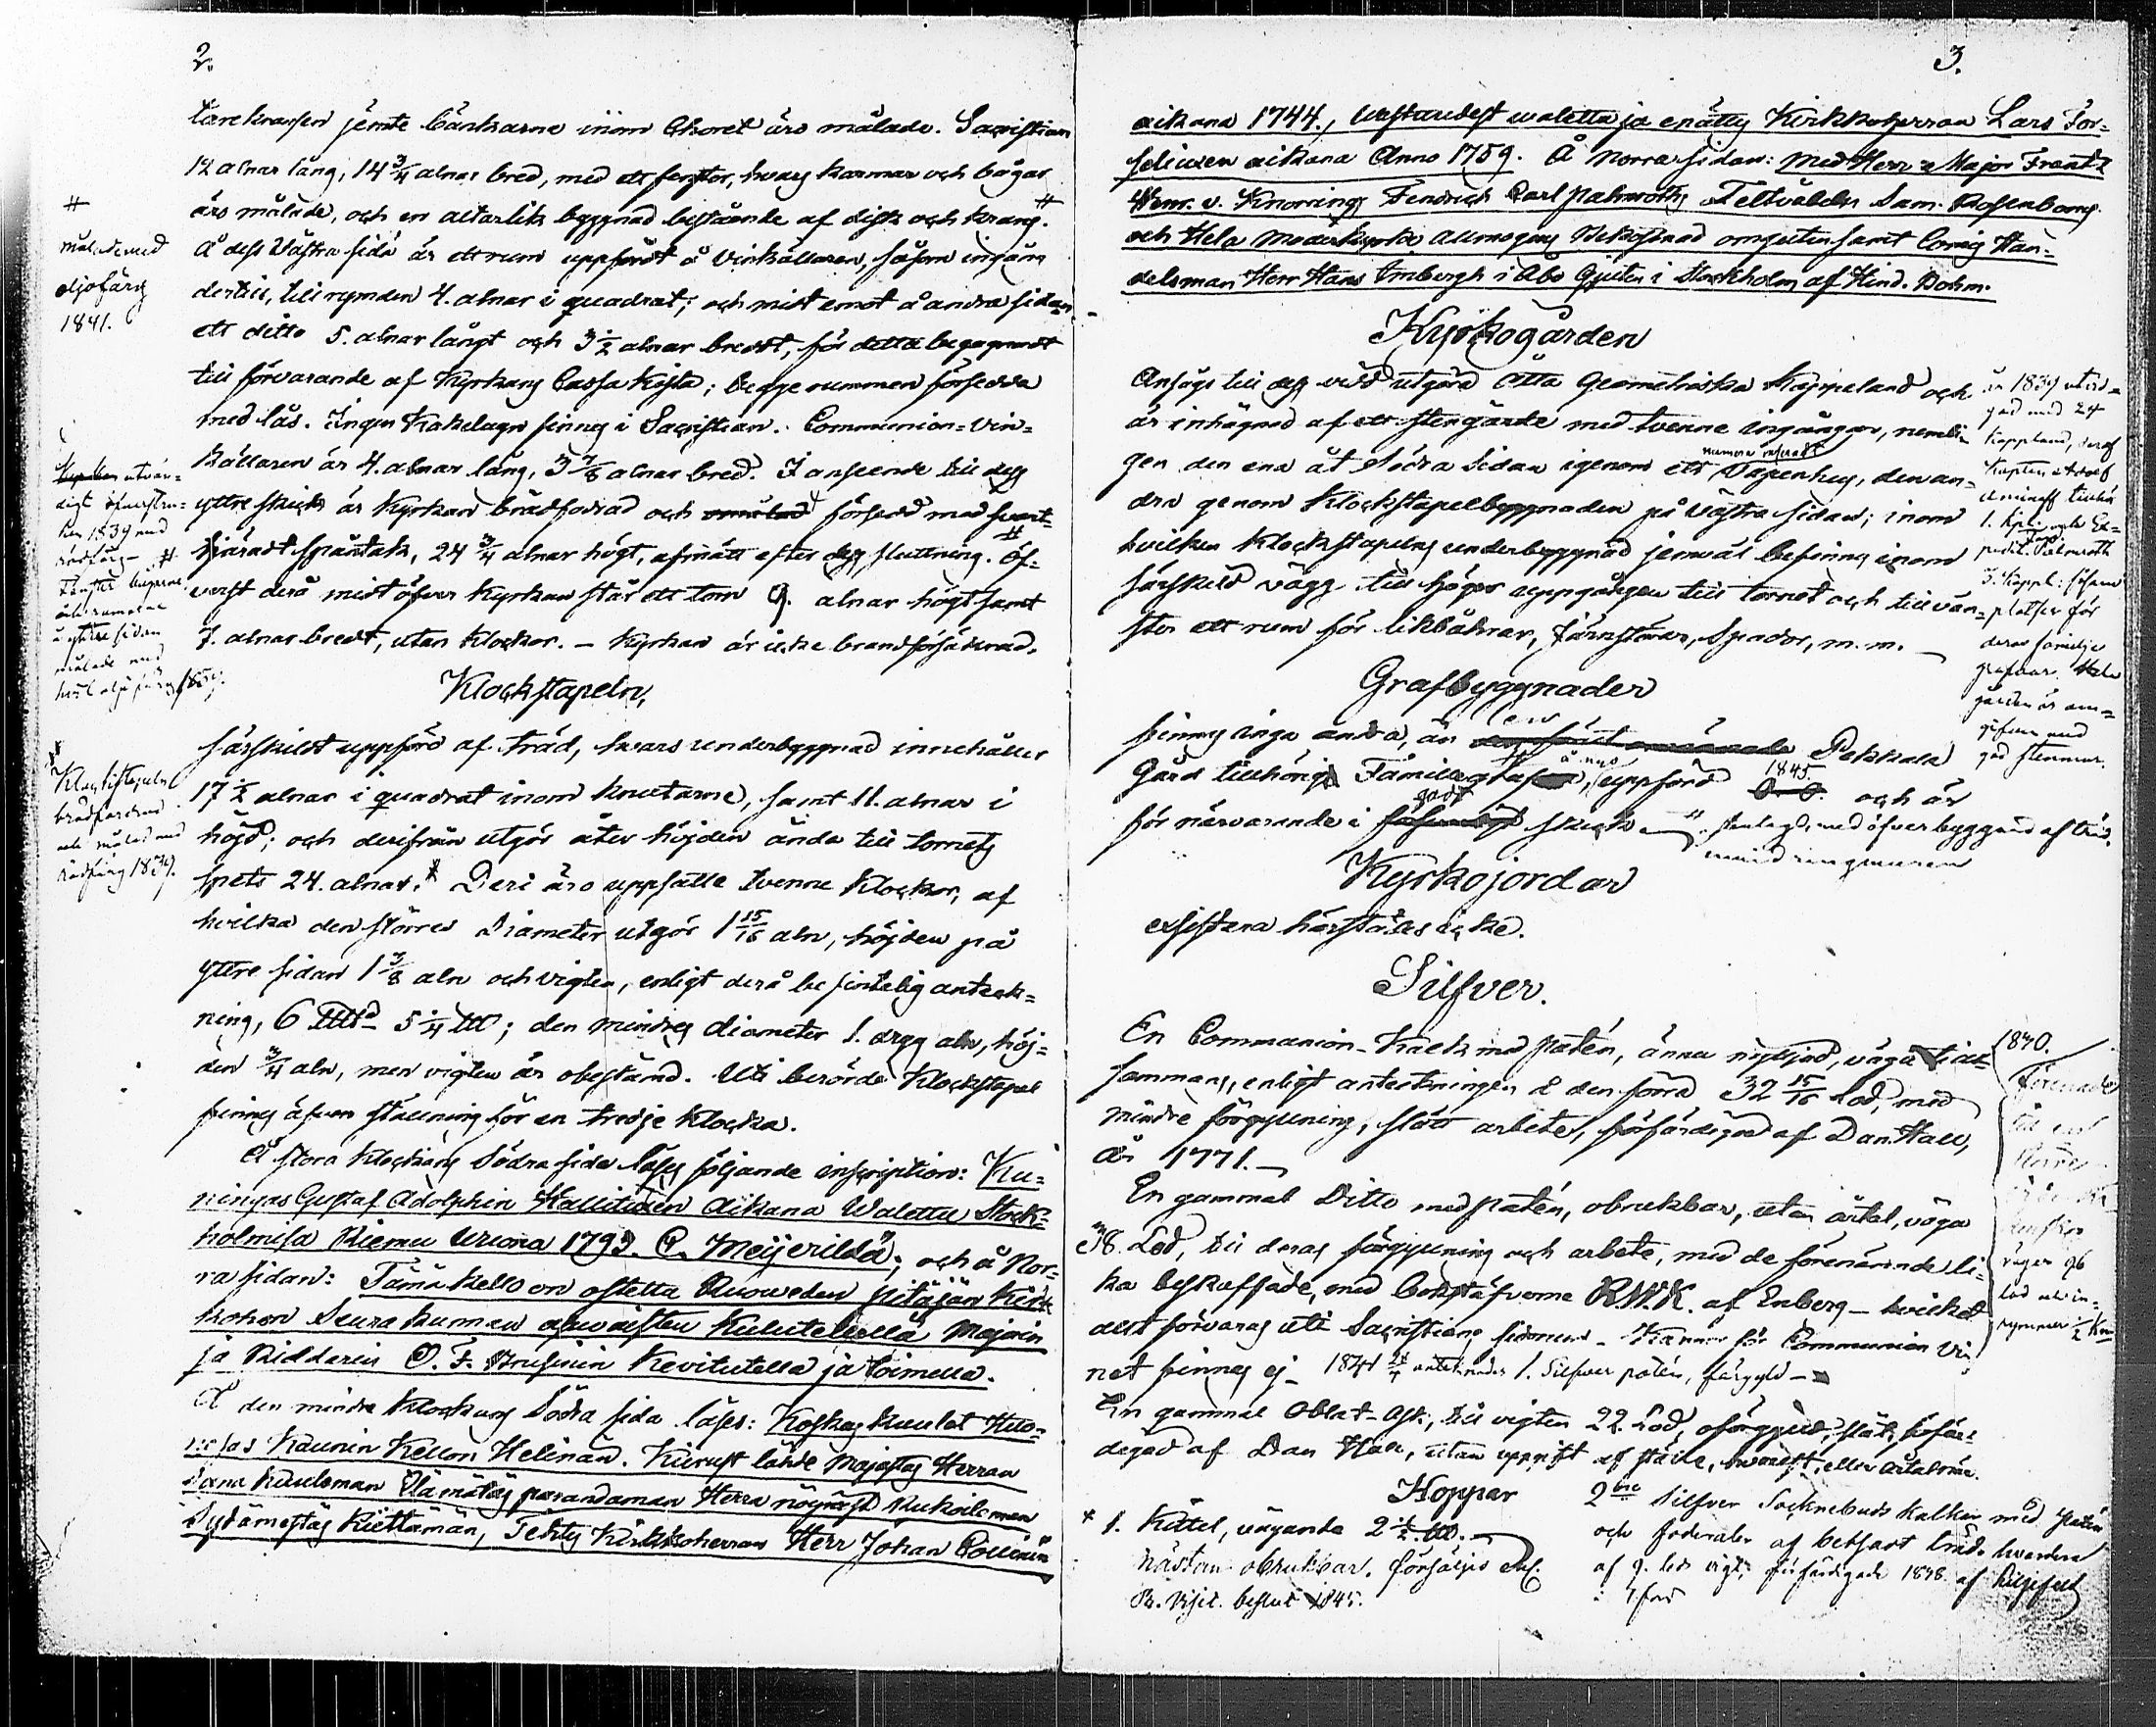 2.
tarekransen jemte bänkarne inom Choret äro målade. Sacristian
12 alnar lång, 14 3/4 alnar bred, med ett fenster, hvars karmar och bågar
äro målade, och en altarlik byggnad bestående af disk och krans. #
Å dess Västra sida är ett rum uppfördt å Vinkällaren, såsom ingång
dertill, till rymden 4. alnar i quadrat; och midt emot å andra sidan
ett ditto 5. alnar långt och 3 1/2 alnar bredt, för detta begagnadt
till förvarande af Kyrkans Cassa Kista; begge rummen försedda
med lås. Ingen Kakelugn finnes i Sacristian. Communion-Vin-
källaren är 4. alnar lång, 3 7/8 alnar bred. I anseende till dess
yttre skick är Kyrkan brädfodrad och omålad försedd med svart-
tjäradt spåntak, 24 3/4 alnar högt, afmätt efter dess sluttning. # Öf-
verst derå midt öfver Kyrkan står ett torn 9. alnar högt samt
7. alnar bredt, utan klockor. – Kyrkan är icke brandförsäkrad.
#
målade med
oljofärg
1841.
Kyrkan utvän-
digt öfverstru-
ken 1839 med
rödfärg – #
Fenster bågarne
å yttre sidan
målade med
hvit oljefärg 1839.
Klockstapeln,
särskildt uppförd af träd, hvars underbyggnad innehåller
17 1/2 alnar i quadrat inom knutarne, samt 11. alnar i
höjd; och derifrån utgör åter höjden ända till tornets
spets 24. alnar. * Deri äro uppsatte tvenne Klockor, af
hvilka den störres Diameter utgör 1 15/16 aln, höjden på
yttre sidan 1 3/8 aln och vigten, enligt derå befintelig anteck-
ning, 6 Skd 5 1/4 Lld; den mindres diameter 1. drygg aln, höj-
den 3/4 aln, men vigten är obestämd. Uti berörde Klockstapel
finnes äfven ställning för en tredje Klocka.
*
Klockstapeln
brädfodrad
och målad med
rödfärg 1839.
Å stora Klockans Södra sida läses följande inscription: Ku-
ningas Gustaf Adolphin Hallitixen Aikana Walettu Stock-
holmisa Riemu Wuonna 1793. C. Meijerildä; och å Nor-
ra sidan: Tämä kello on ostettu Ruoweden pitäjän Kirk
kohon Seurakunnan apuwaisten Kulutuxella Majorin
ja Ridderin C. F. Brusiinin Kevitutella ja toimella.
Å den mindre Klockans Södra sida läses: Koskas kuulet Kuo-
rosas Kaunin Kellon Helinän. Kiirust lähde Majastas Herran
Sana Kuuleman Elämätäs parandaman Herra nöyräst Rukoileman
Sydämestäs Kiettämän, Tehty Kirkkoherran Herr Johan Collinin
3.
aikana 1744., Uusitandest walettu ja enätty Kirkkoherran Lars For-
seliuxen aikana Anno 1759. Å Norra sidan: Med Herr Major Frantz
Henr. v. Knorrings Fendrich Carl Palmroths Feltväbeln Sam. Rosenborgs
och Hela Moderkyrko allmogens Bekostnad omguten samt Comis Han-
delsman Herr Hans Imbergh i Åbo Gjuten i Stockholm af Hind. Bohm.
Kyrkogården
Anses till dess vidd utgöra Otta Geometriska Kappeland och
är inhägnad af ett stengärde med tvenne ingångar, nemli-
gen den ena åt Södra Sidan igenom ett numera raseradt Vapenhus, den an-
dra genom Klockstapelbyggnaden på Västra sidan; inom
hvilken Klockstapelns underbyggnad jemväl befinnes inom
särskild vägg till höger uppgången till tornet och till vän-
ster ett rum för likbårar, järnstörar, Spador, m. m. –
år 1839 utvid-
gad med 24
kappland, deraf
Kapten Adolf
Aminoff tillhör
1. Kpl. och Ex-
pedit. Palmroth
3. Kappl: såsom
platser för
deras familje
grafvar. Hela
gården är om-
gifven med
god stenmur.
Grafbyggnader
finnes inga andra, än en Pekkala
Gård tillhörig Familiegraf, å nyo uppförd 1845. och är
för närvarande i godt skick – stenlagd, med öfverbyggnad af träd,
ringmuren
Kyrkojordar
existera härstädes icke.
Silfver.
En Communion-Kalk med patén, ännu nyttjad, väga till
sammans, enligt anteckningen å den förra 32 15/16 Lod, med
mindre förgyllning, slätt arbete, förfärdigad af Dan. Hall,
år 1771. –
En gammal Ditto med patén, obrukbar, utan årtal, väga
38. Lod, till deras förgyllning och arbete, med de förenämnde li-
ka beskaffade, med bokstäfverne R.W.K. af Enberg – hvilket
allt förvaras uti Sacristians – Kannor för Communion Vi-
net finnes ej – 1841 antecknades 1. Silfver patén, förgyld –
En gammal Oblat-Ask, till vigten 22. Lod, oförgyld, slät, förfär-
digad af Dan Hall, utan uppgift af ställe, hvarest, eller årtal när.
1840.
Förenade
till en
större
väger 96
lod och in-
rymmer 1/2 Kna
Koppar
* 1. Kittel, vägande 2 1/2 Lld. –
nästan obrukbar. försåljes enl.
Pr. Visit. beslut 1845.
2ne Silfver Sockenbuds Kalkar med patén
och foderaler af betsadt träd, hvardera
af 9. lods vigt, förfärdigade 1848 af Liljefelt